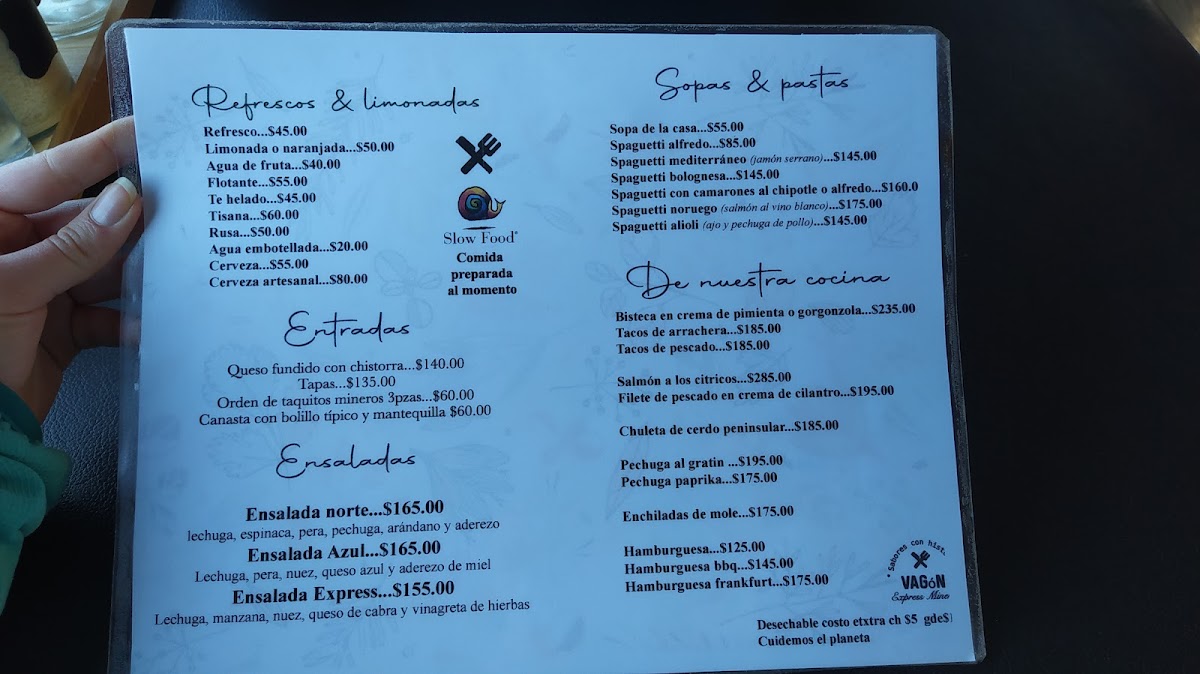 Refrescos & limonadas
Refresco...$45.00
Limonada o naranjada...$50.00
Agua de fruta...$40.00
Flotante...$55.00
Te helado...$45.00
Tisana...$60.00
Rusa...$50.00
Agua embotellada...$20.00
Cerveza...$55.00
Cerveza artesanal...$80.00
Slow Food®
Comida
preparada
al momento
Entradas
Queso fundido con chistorra...$140.00
Tapas...$135.00
Orden de taquitos mineros 3pzas...$60.00
Canasta con bolillo típico y mantequilla $60.00
Ensaladas
Ensalada norte...$165.00
lechuga, espinaca, pera, pechuga, arándano y aderezo
Ensalada Azul...$165.00
Lechuga, pera, nuez, queso azul y aderezo de miel
Ensalada Express...$155.00
Lechuga, manzana, nuez, queso de cabra y vinagreta de hierbas
Sopas & pastas
Sopa de la casa...$55.00
Spaguetti alfredo...$85.00
Spaguetti mediterráneo (jamón serrano)...$145.00
Spaguetti bolognesa...$145.00
Spaguetti con camarones al chipotle o alfredo...$160.0
Spaguetti noruego (salmón al vino blanco)...$175.00
Spaguetti alioli (ajo y pechuga de pollo)...$145.00
De nuestra cocina
Bisteca en crema de pimienta o gorgonzola...$235.00
Tacos de arrachera...$185.00
Tacos de pescado...$185.00
Salmón a los citricos...$285.00
Filete de pescado en crema de cilantro...$195.00
Chuleta de cerdo peninsular...$185.00
Pechuga al gratin ...$195.00
Pechuga paprika...$175.00
Enchiladas de mole...$175.00
Hamburguesa...$125.00
Hamburguesa bbq...$145.00
Hamburguesa frankfurt...$175.00
* Sabores con hist.
VAGóN
Express Mine
Desechable costo etxtra ch $5 gde$1
Cuidemos el planeta